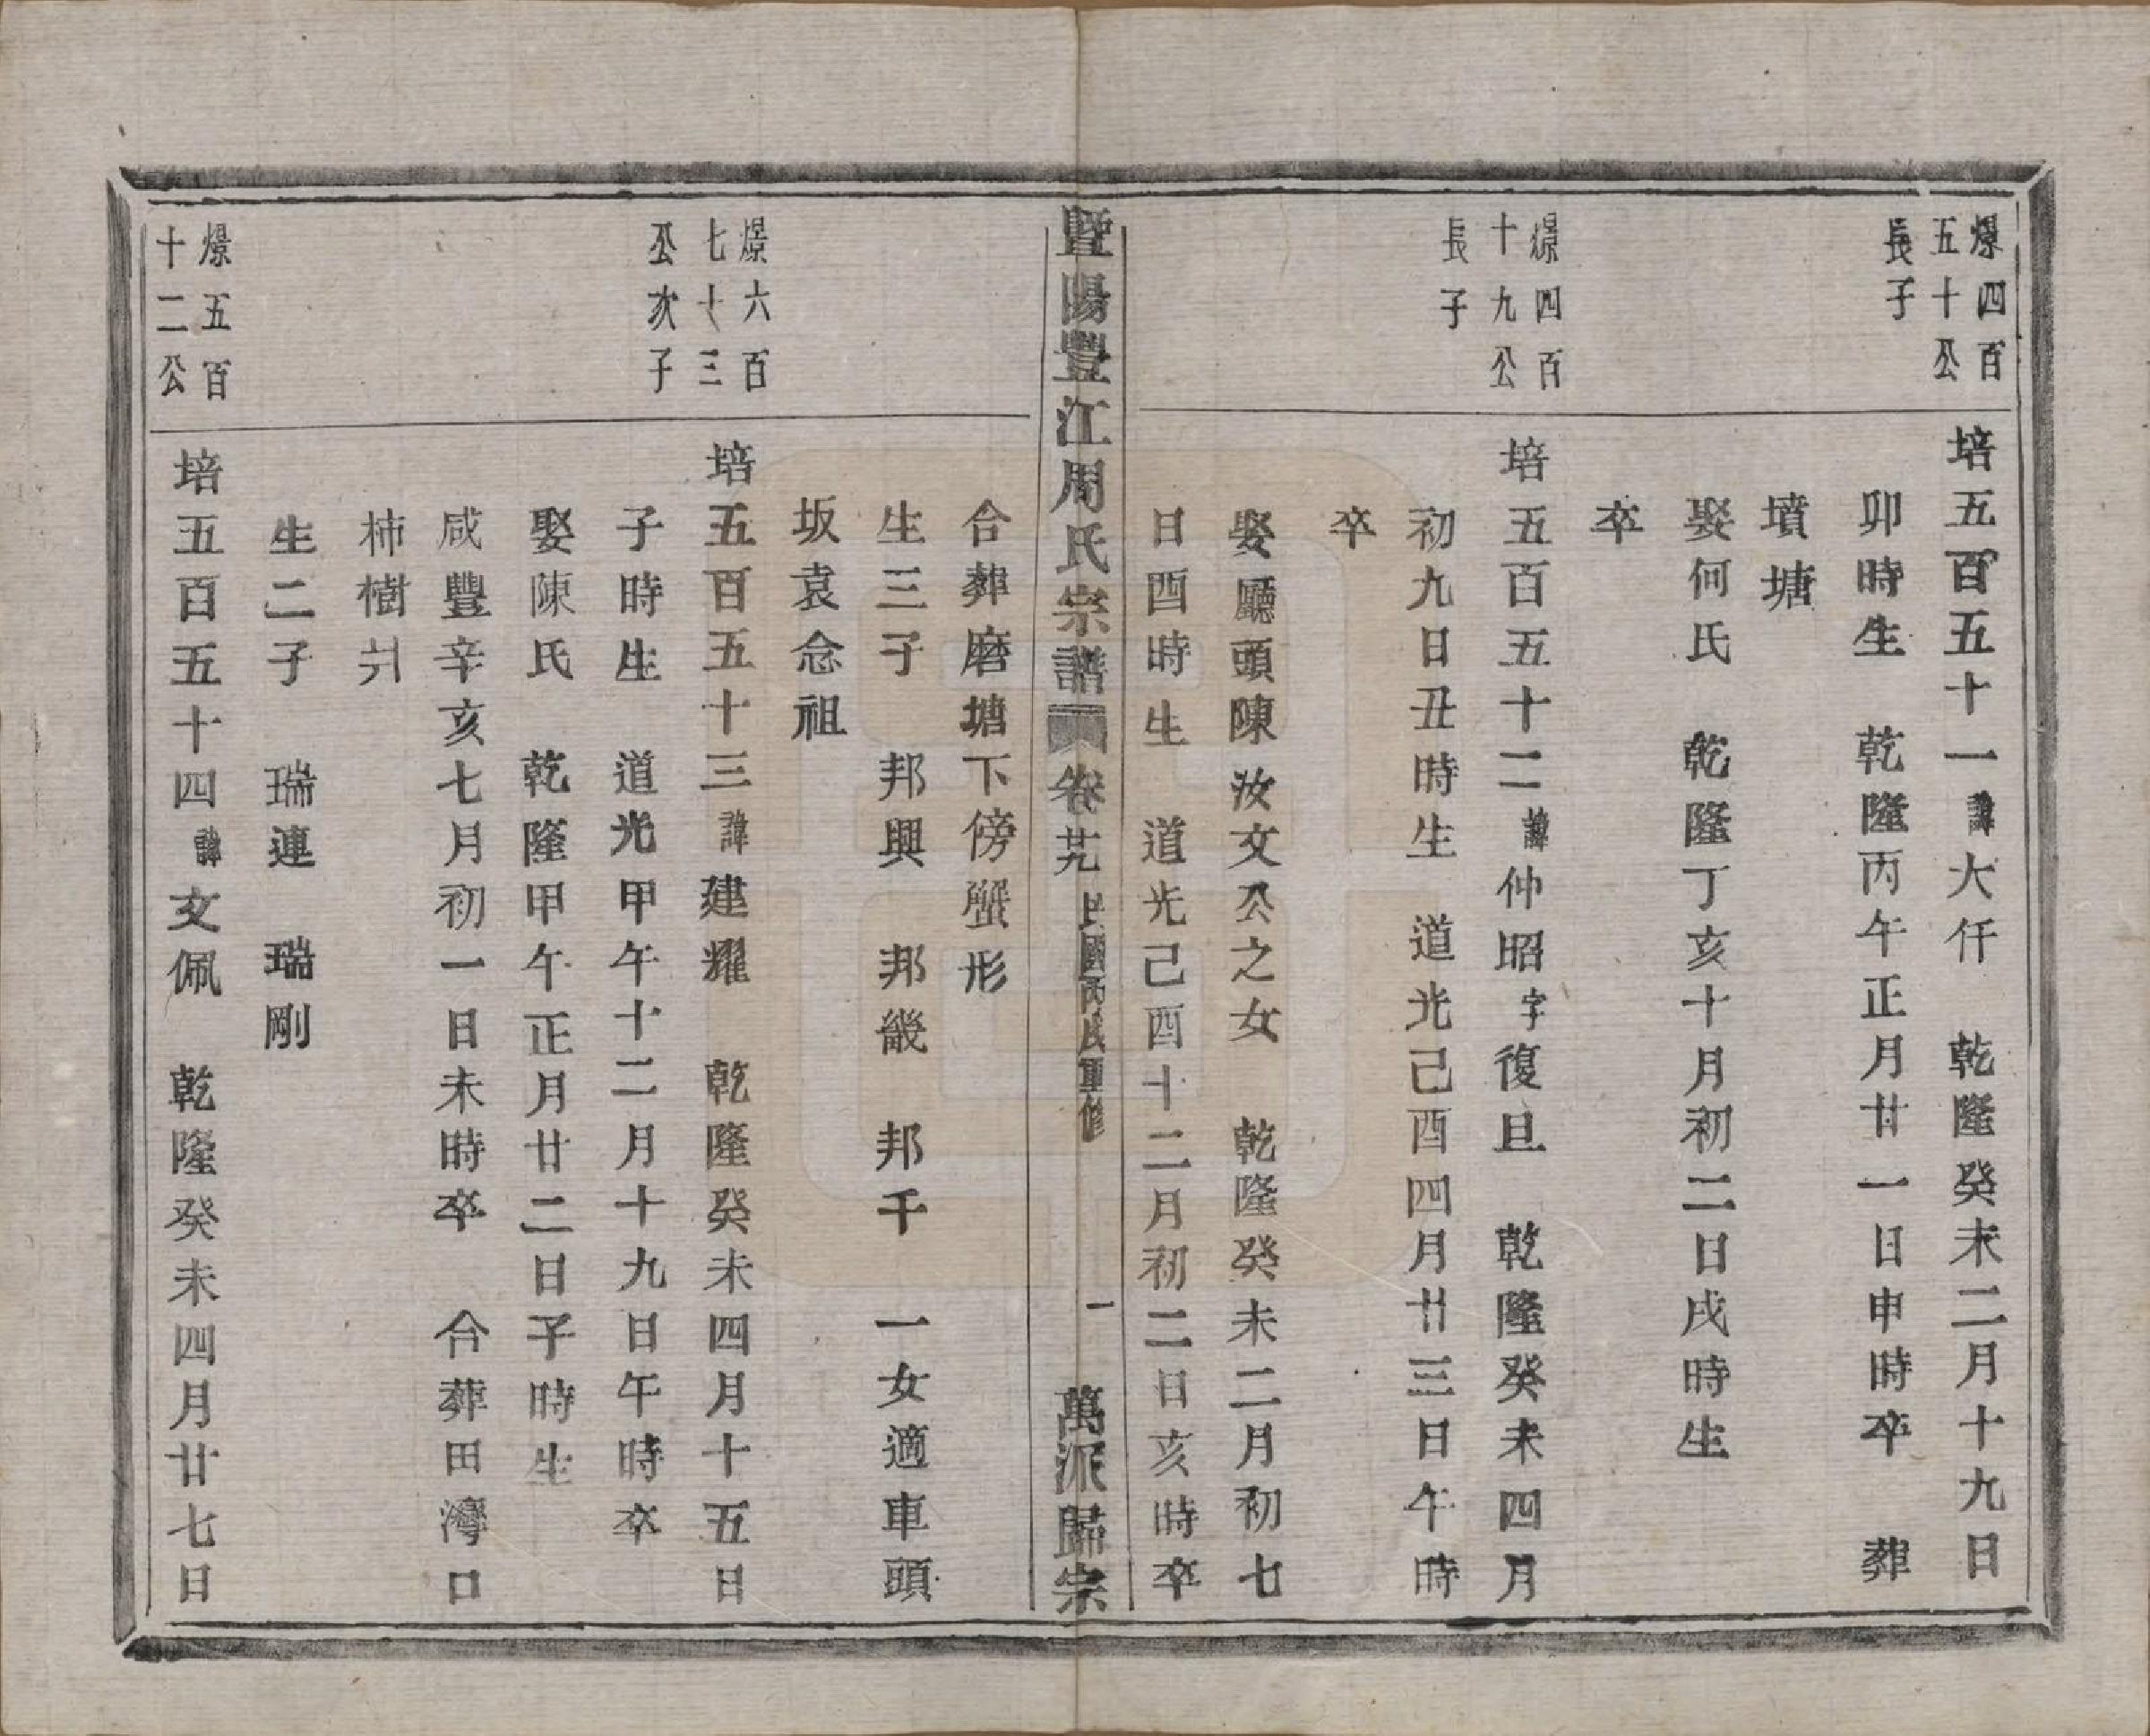 燝四百
五十公
長子
培五百五十一諱大仟　乾隆癸未二月十九日
卯時生　乾隆丙午正月廿一日申時卒　葬
墳塘
娶何氏　乾隆丁亥十月初二日戌時生
卒
燝四百
十九公
長子
培五百五十二諱仲昭字復旦　乾隆癸未四月
初九日丑時生　道光己酉四月廿三日午時
卒
娶廳頭陳汝文公之女　乾隆癸未二月初七
日酉時生　道光己酉十二月初二日亥時卒
暨陽豐江周氏宗譜　卷廿九　民國丙戌重修　一　萬派歸宗
合葬磨塘下傍蟹形
生三子　邦興　邦畿　邦千　一女適車頭
坂袁念祖
燝六百
七十三
公次子
培五百五十三諱建耀　乾隆癸未四月十五日
子時生　道光甲午十二月十九日午時卒
娶陳氏　乾隆甲午正月廿二日子時生
咸豐辛亥七月初一日未時卒　合葬田灣口
柿樹爿
生二子　瑞連　瑞剛
燝五百
十二公
培五百五十四諱文佩　乾隆癸未四月廿七日